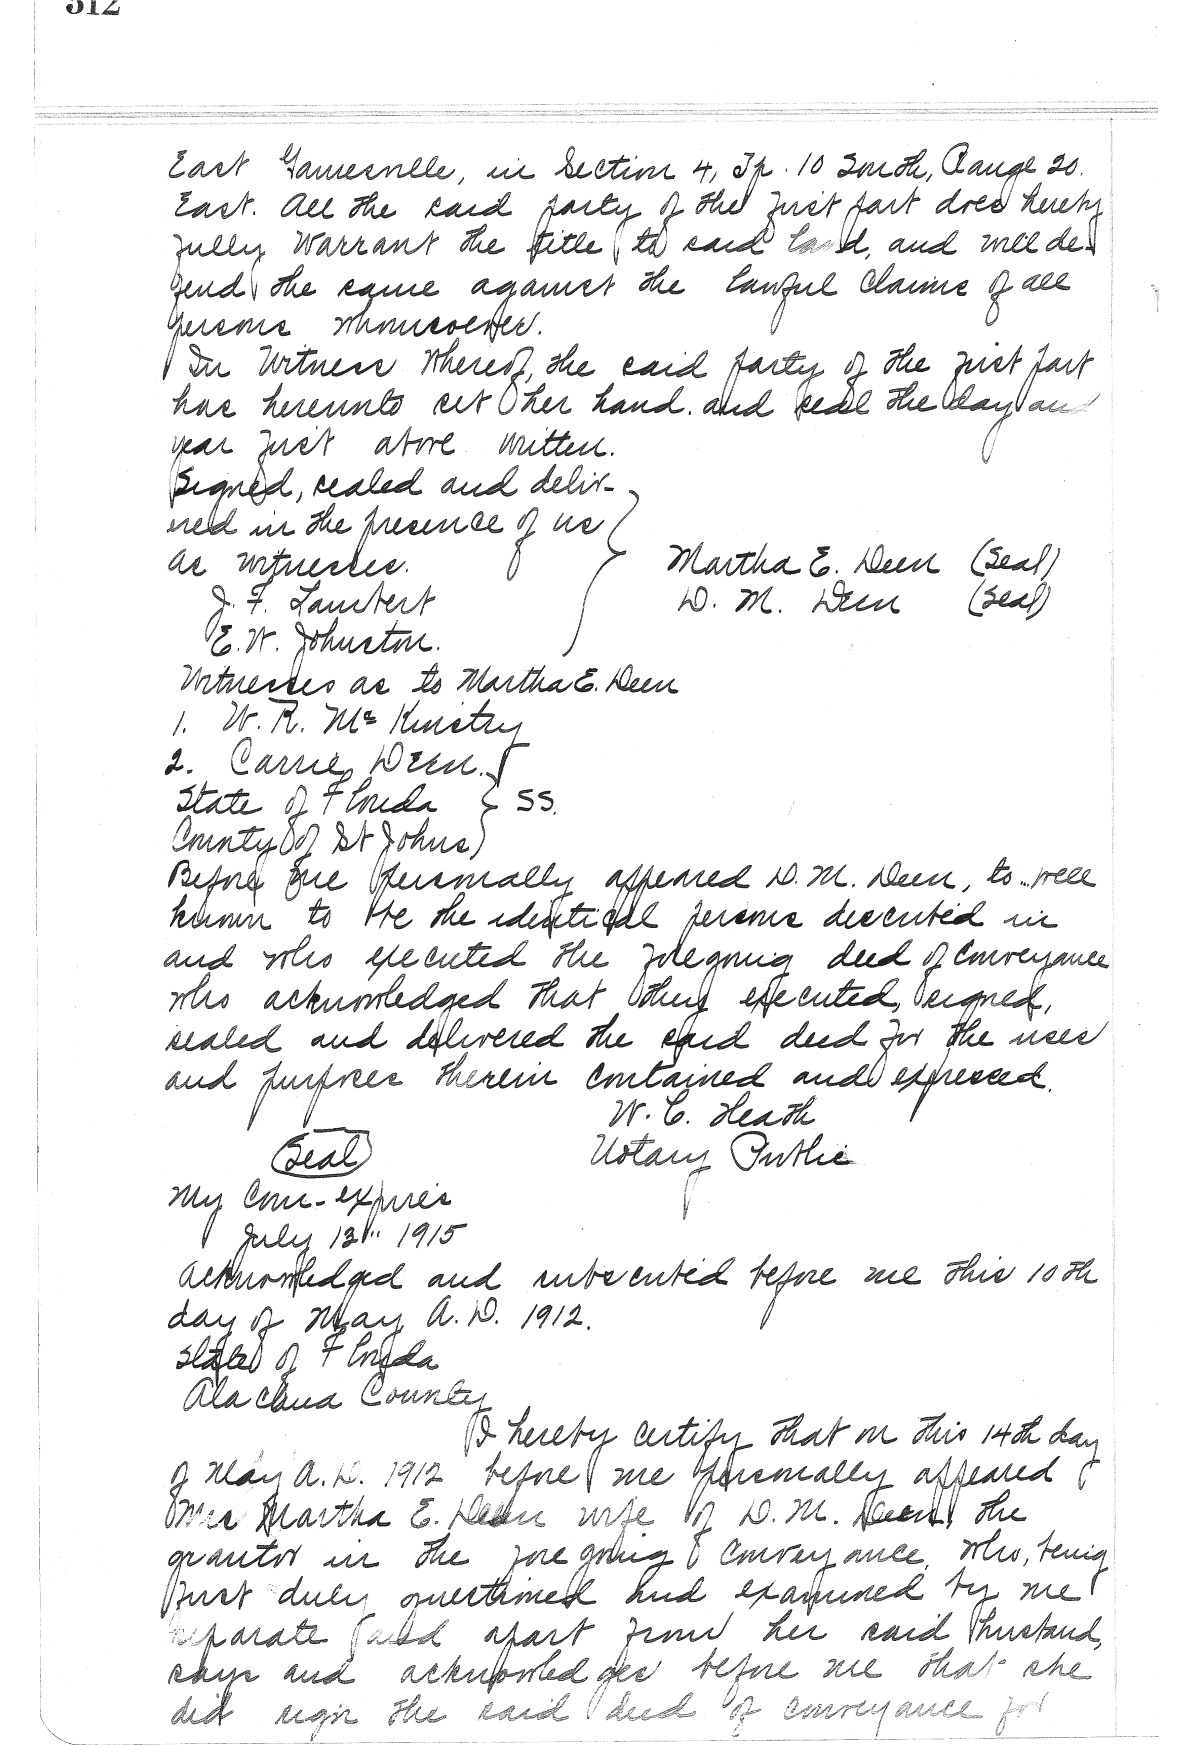 312
East Gainesville, in Section 4, Tp. 10 South, Range 20.
East. All the said party of the first part does hereby
fully warrant the title to said land, and will de-
fend the same against the lawful claims of all
persons whomsoever.
In Witness Whereof, the said party of the first part
has hereunto set her hand and seal the day and
year first above written.
Signed, sealed and deliv-
ered in the presence of us
as witnesses.
Martha E. Deen (Seal)
J. F. Lambert
D. M. Deen (Seal)
E. W. Johnston.
Witnesses as to Martha E. Deen
1. W. R. McKinstry
2. Carrie Deen.
State of Florida } SS.
County of St Johns
Before me personally appeared D. M. Deen, to well
known to be the identical persons described in
and who executed the foregoing deed of conveyance
who acknowledged that they executed, signed,
sealed and delivered the said deed for the uses
and purposes therein contained and expressed.
W. C. Heath
(Seal) Notary Public
My Com- expires
July 13" 1915
Acknowledged and subscribed before me this 10th
day of May A. D. 1912.
State of Florida
Alachua County
I hereby certify that on this 14th day
of May A. D. 1912 before me personally appeared
Mrs Martha E. Deen wife of D. M. Deen, the
grantor in the foregoing conveyance, who, being
first duly questioned and examined by me
separate and apart from her said husband,
says and acknowledges before me that she
did sign the said deed of conveyance for